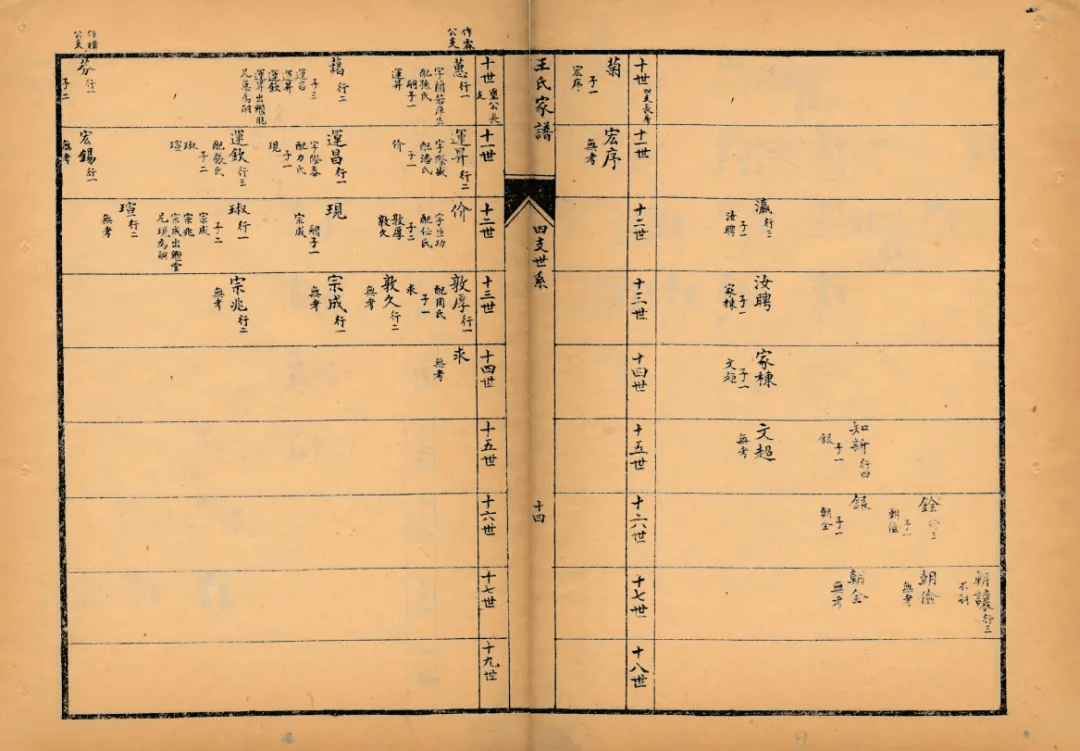 瀛 行二
子一
汝聘
汝聘
子一
家棟
家棟
子一
文超
知新 行四
子一
銀
文超
無考
銓 行三
子一
子一
朝全
朝讓 行二
朝
無考
朝全
無考
十世
十一世
十二世
十三世
十四世
十五世
十六世
十七世
十八世
菊
子一
宏序
宏序
無考
王氏家譜
四支世系
十四
作霖
公支
十世
十一世
十二世
十三世
十四世
十五世
十六世
十七世
十九世
蕙 行一
配張氏
嗣子一
運昇
藹 行二
子三
運昌
運昇
運欽
運昇出繼胞
兄蕙為嗣
公支
芬 行一
子二
運昇 行二
字際盛
配潘氏
子一
价
運昌 行一
字際泰
配力氏
子一
現
運欽 行三
配張氏
子二
琡
瑄
宏錫 行一
無考
价
字臣功
配任氏
子二
敦厚
敦久
現
嗣子一
宗成
琡 行一
子二
宗成
宗兆
宗成出繼堂
兄現為嗣
瑄 行二
無考
敦厚 行一
配周氏
子一
求
敦久 行二
無考
宗成 行一
無考
宗兆 行二
無考
求
無考